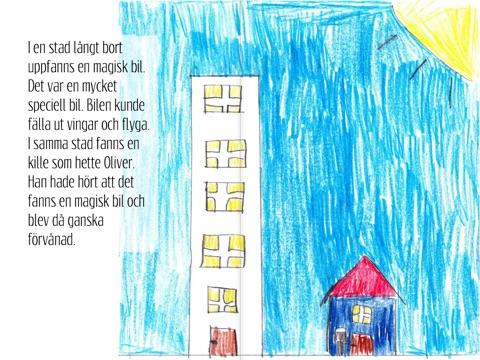 I en stad långt bort
uppfanns en magisk bil.
Det var en mycket
speciell bil. Bilen kunde
fälla ut vingar och flyga.
I samma stad fanns en
kille som hette Oliver.
Han hade hört att det
fanns en magisk bil och
blev då ganska
förvånad.